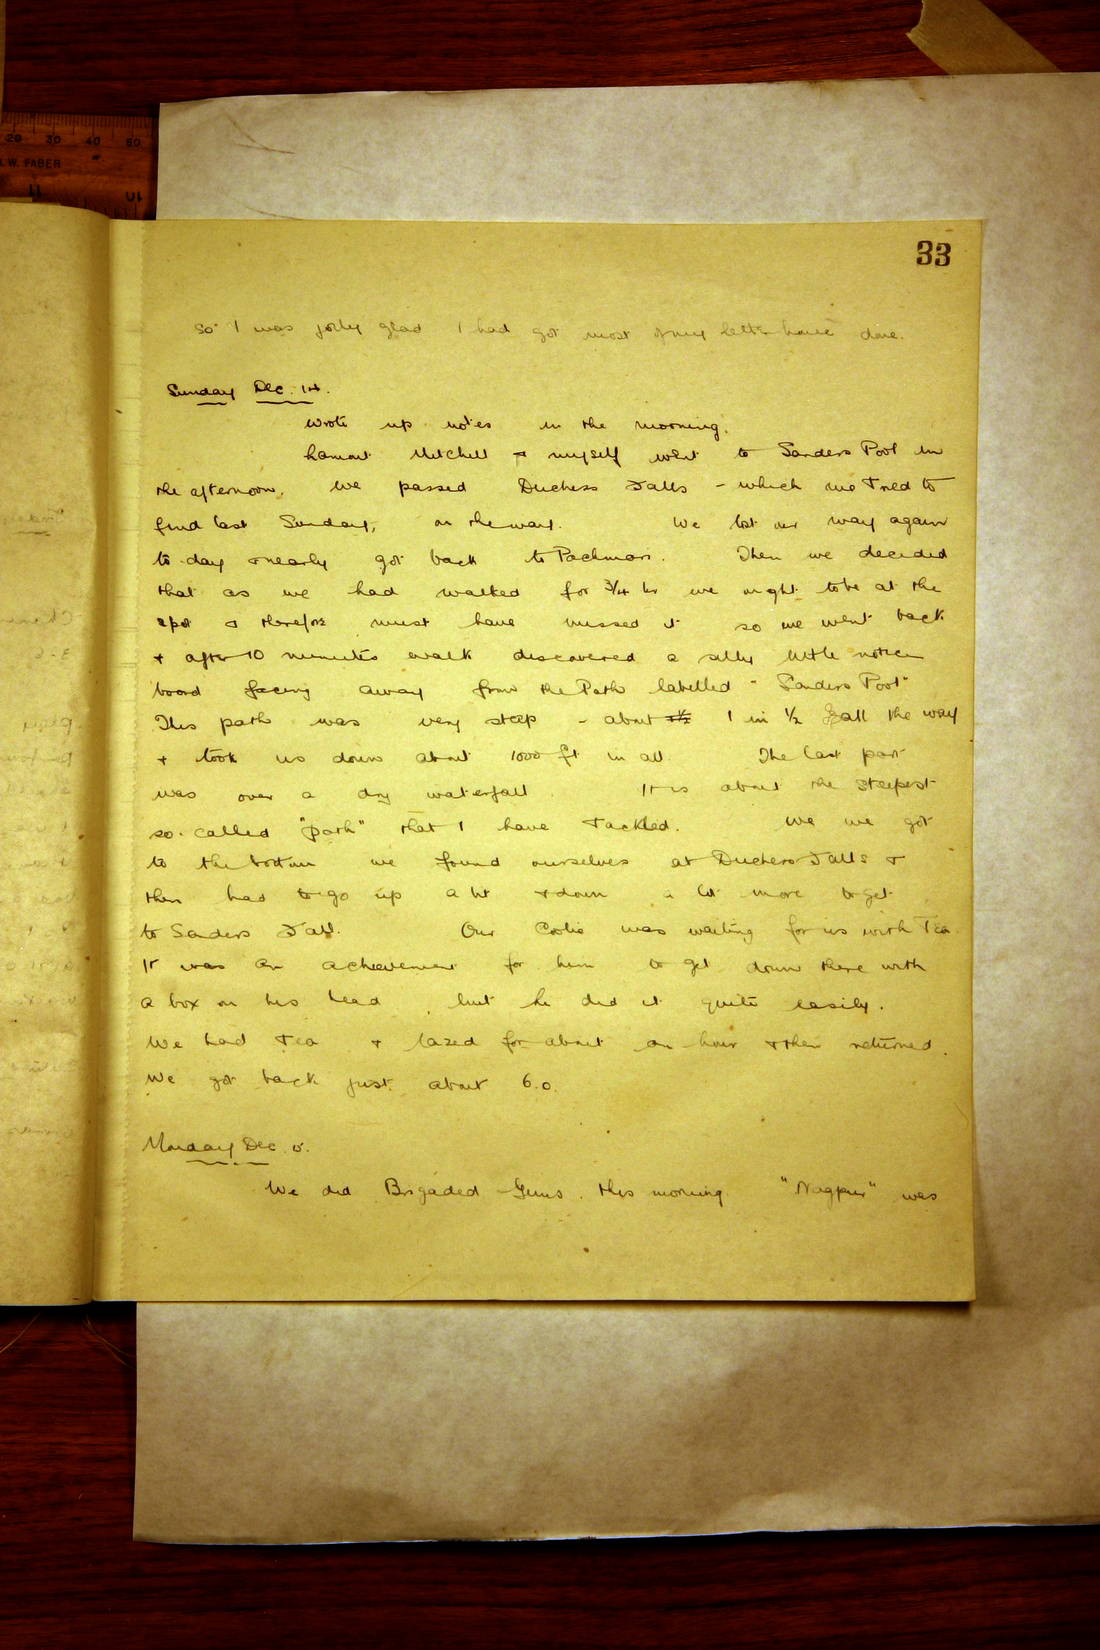 20 30 40 50
L.W. FABER
11 10
33
So I was jolly glad I had got most of my letter home done.
Sunday Dec. 14.
Wrote up notes in the morning.
Lamont Mitchell & myself went to Sanders Pool in
the afternoon. We passed Duchess Falls - which we tried to
find last Sunday, on the way. We lost our way again
to-day & nearly got back to Pachmari. Then we decided
that as we had walked for 3/4 hr we ought to be at the
spot & therefore must have missed it so we went back
& after 10 minutes walk discovered a silly little notice
board facing away from the Path labelled "Sanders Pool"
This path was very steep - about 1 in 1/2 all the way
& took us down about 1000 ft in all. The last part
was over a dry waterfall. It is about the steepest
so-called "path" that I have tackled. We we got
to the bottom we found ourselves at Duchess Falls &
then had to go up a bit & down a lot more to get
to Sanders Fall. Our Coolie was waiting for us with Tea.
It was an achievement for him to get down there with
a box on his head but he did it quite easily.
We had tea & lazed for about an hour & then returned.
We got back just about 6.0.
Monday Dec
We did Brigaded Guns this morning. "Nagpur" was